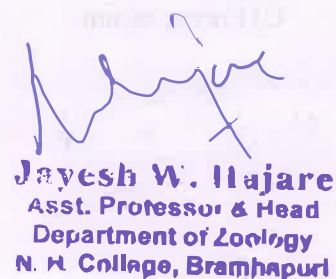 Jayesh W. Hajare
Asst. Professor & Head
Department of Zoology
N. H. College, Bramhapuri